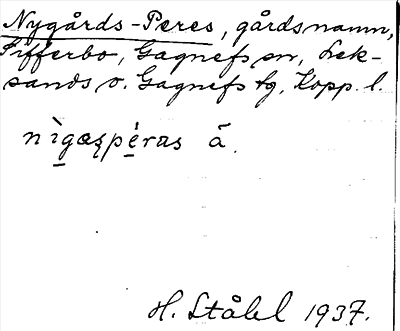 Nygårds-Peres, gårdsnamn,
Sifferbo, Gagnefs sn, Lek-
sands o. Gagnefs tg, Kopp. l.
nìgæʂpéras å.
H. Ståhl 1937.